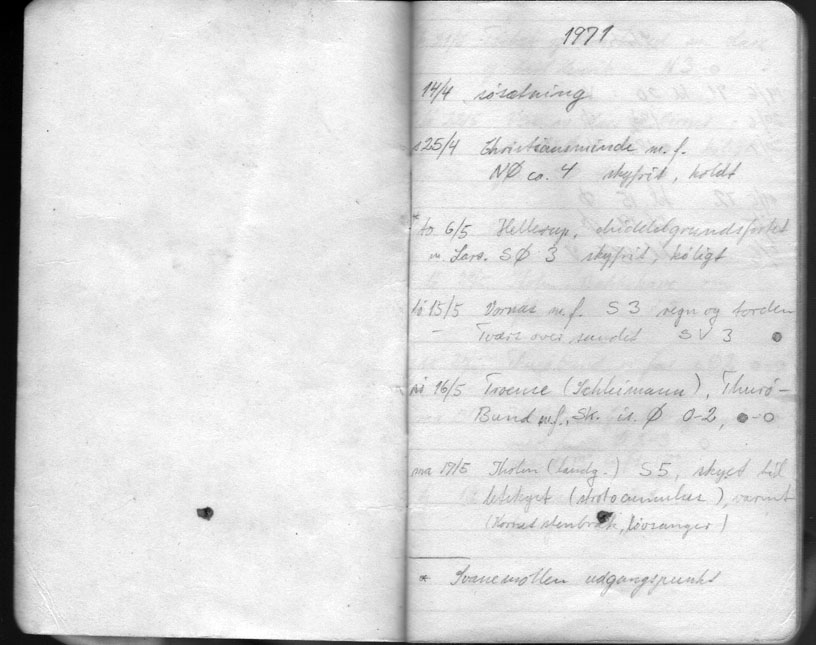 1971
14/4 søsætning
s 25/4 Christiansminde m.f.
NØ ca. 4 skyfrit, koldt
* to. 6/5 Hellerup, Middelgrundsfortet
m. Lars. SØ 3 skyfrit, køligt
lø 15/5 m.f. S 3 regn og torden
– Tværs over sundet SV 3 ●
sø 16/5 Troense (Schleimann), Thurø-
Bund m.f., Sk. is. Ø 0-2, ●-○
ma 17/5 Tholen (landg.) S5, skyet til
letskyet (stratocumulus), varmt
stenbræk, løvsanger)
* Svanemøllen udgangspunkt